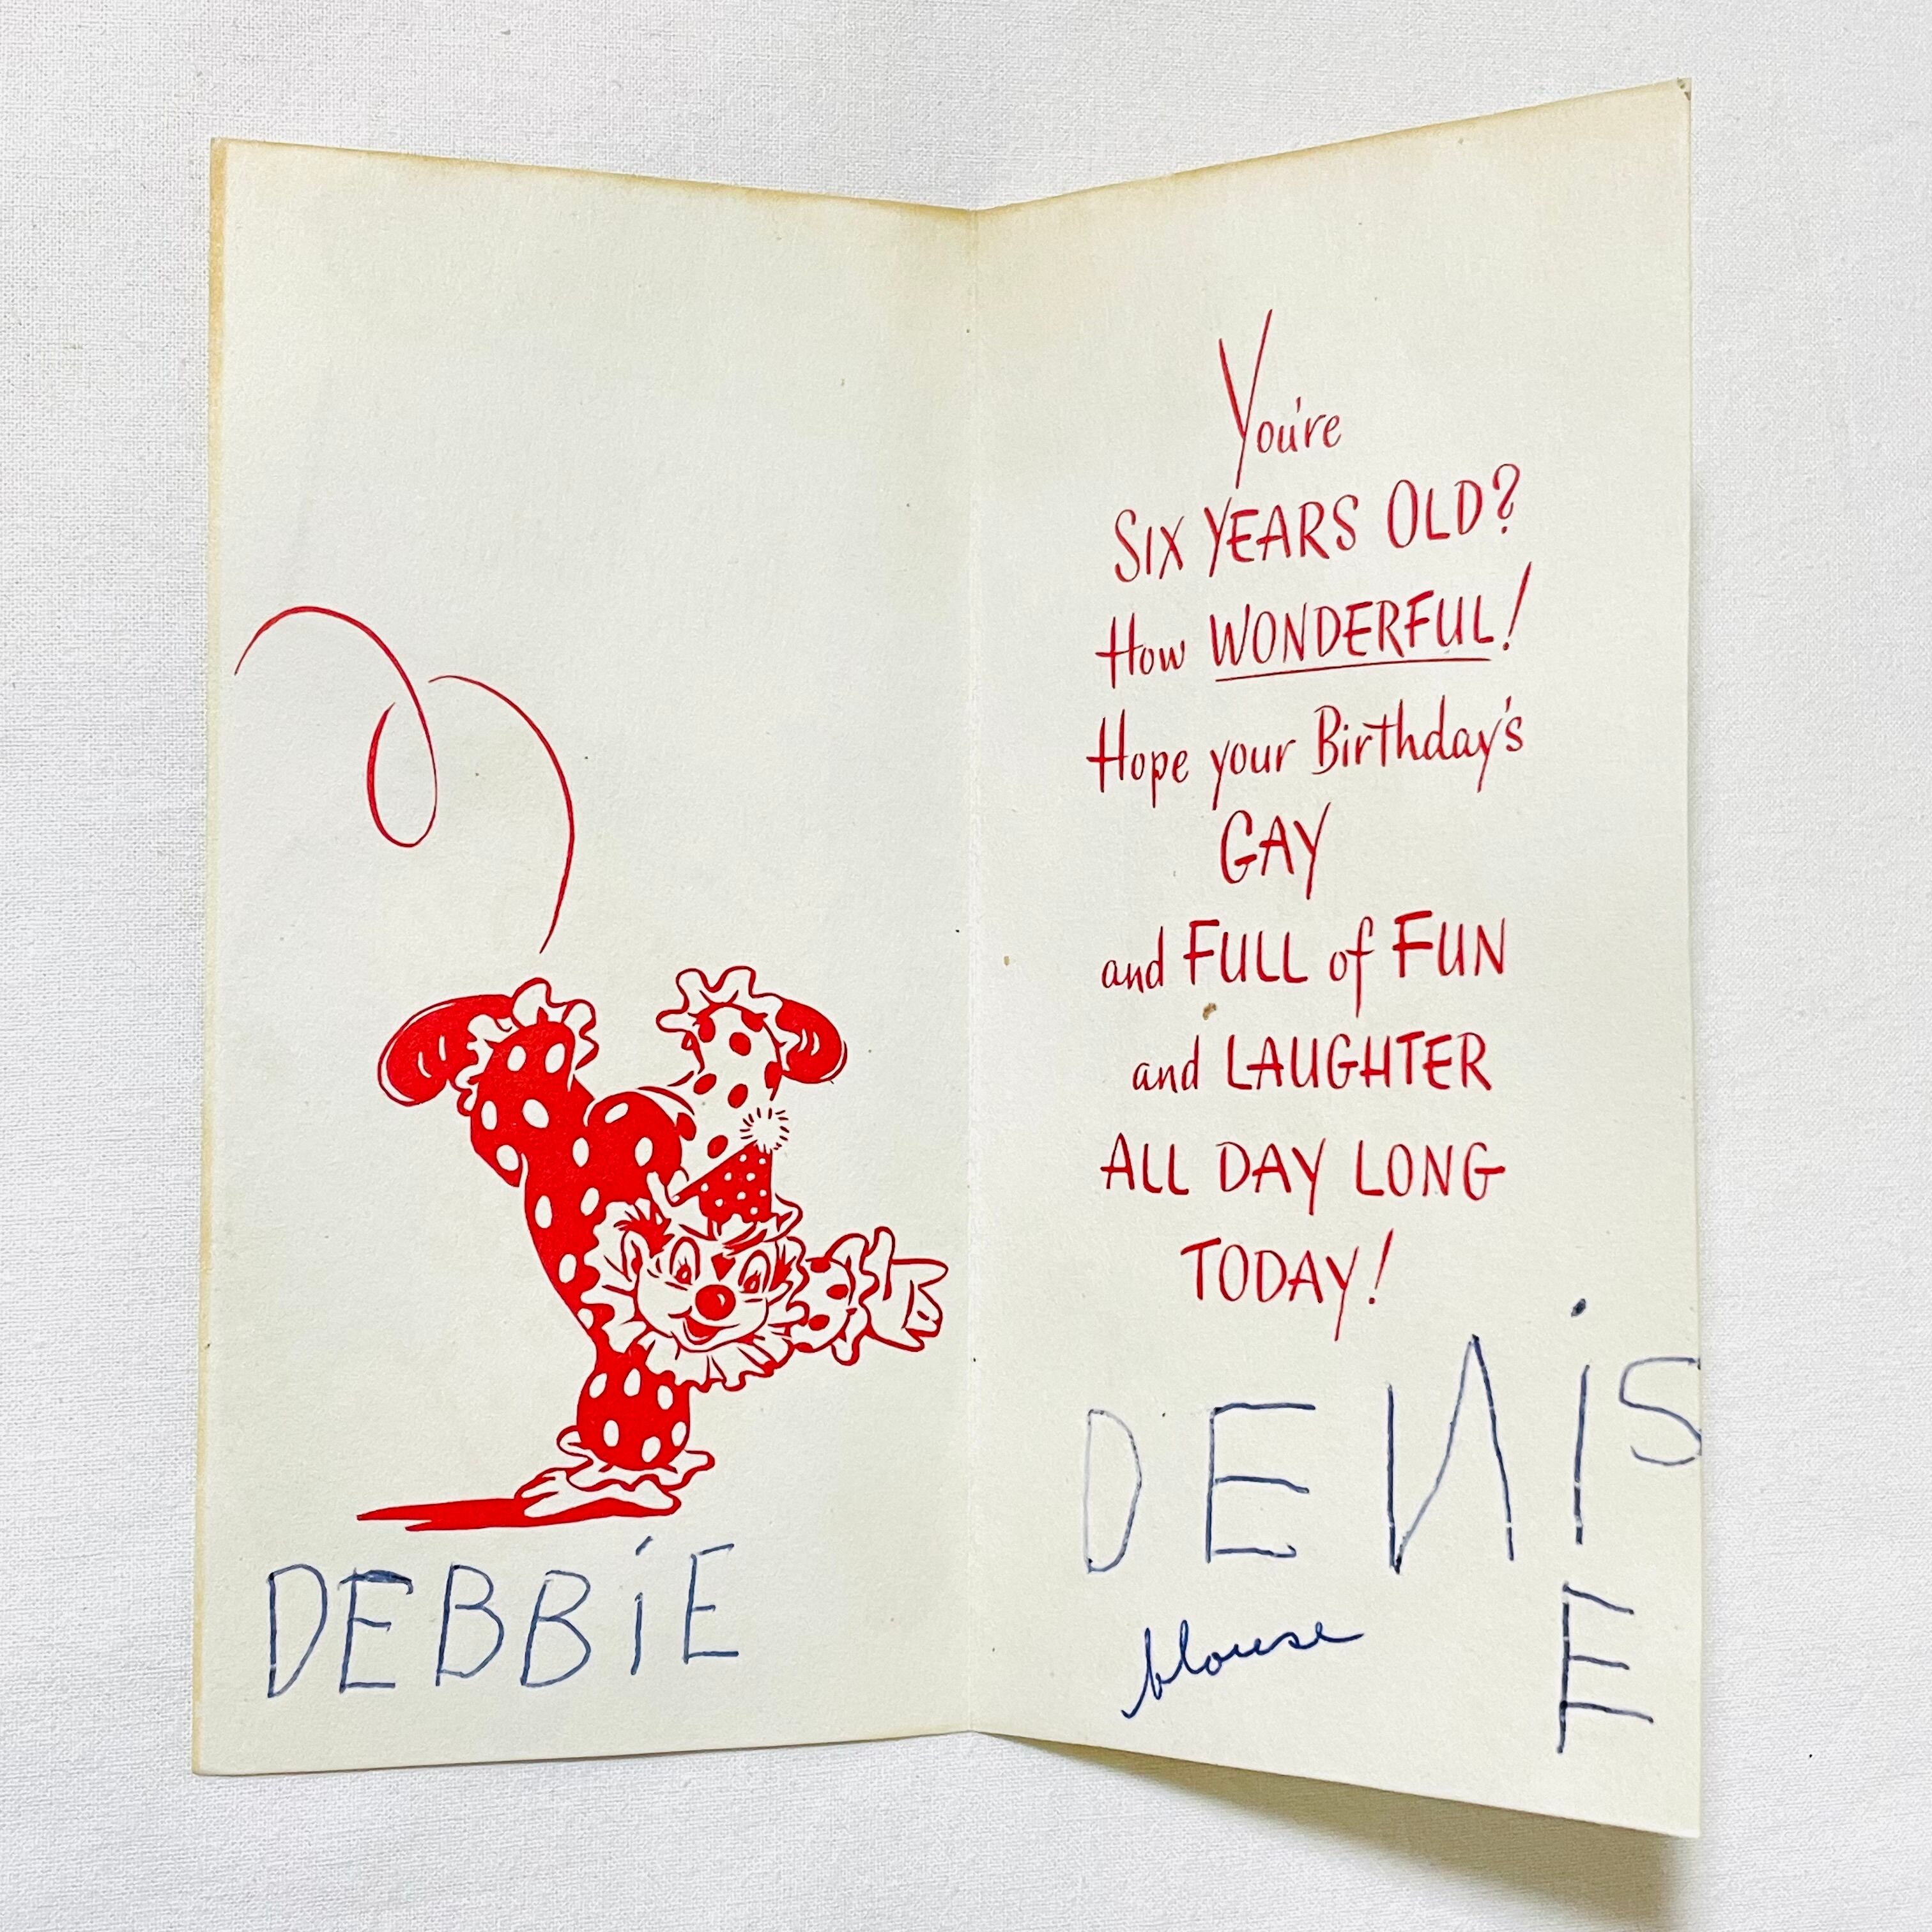 You're
SIX YEARS OLD?
How WONDERFUL!
Hope your Birthday's
GAY
and FULL of FUN
and LAUGHTER
ALL DAY LONG
TODAY!
DEBBiE
DENiS
E
blouse